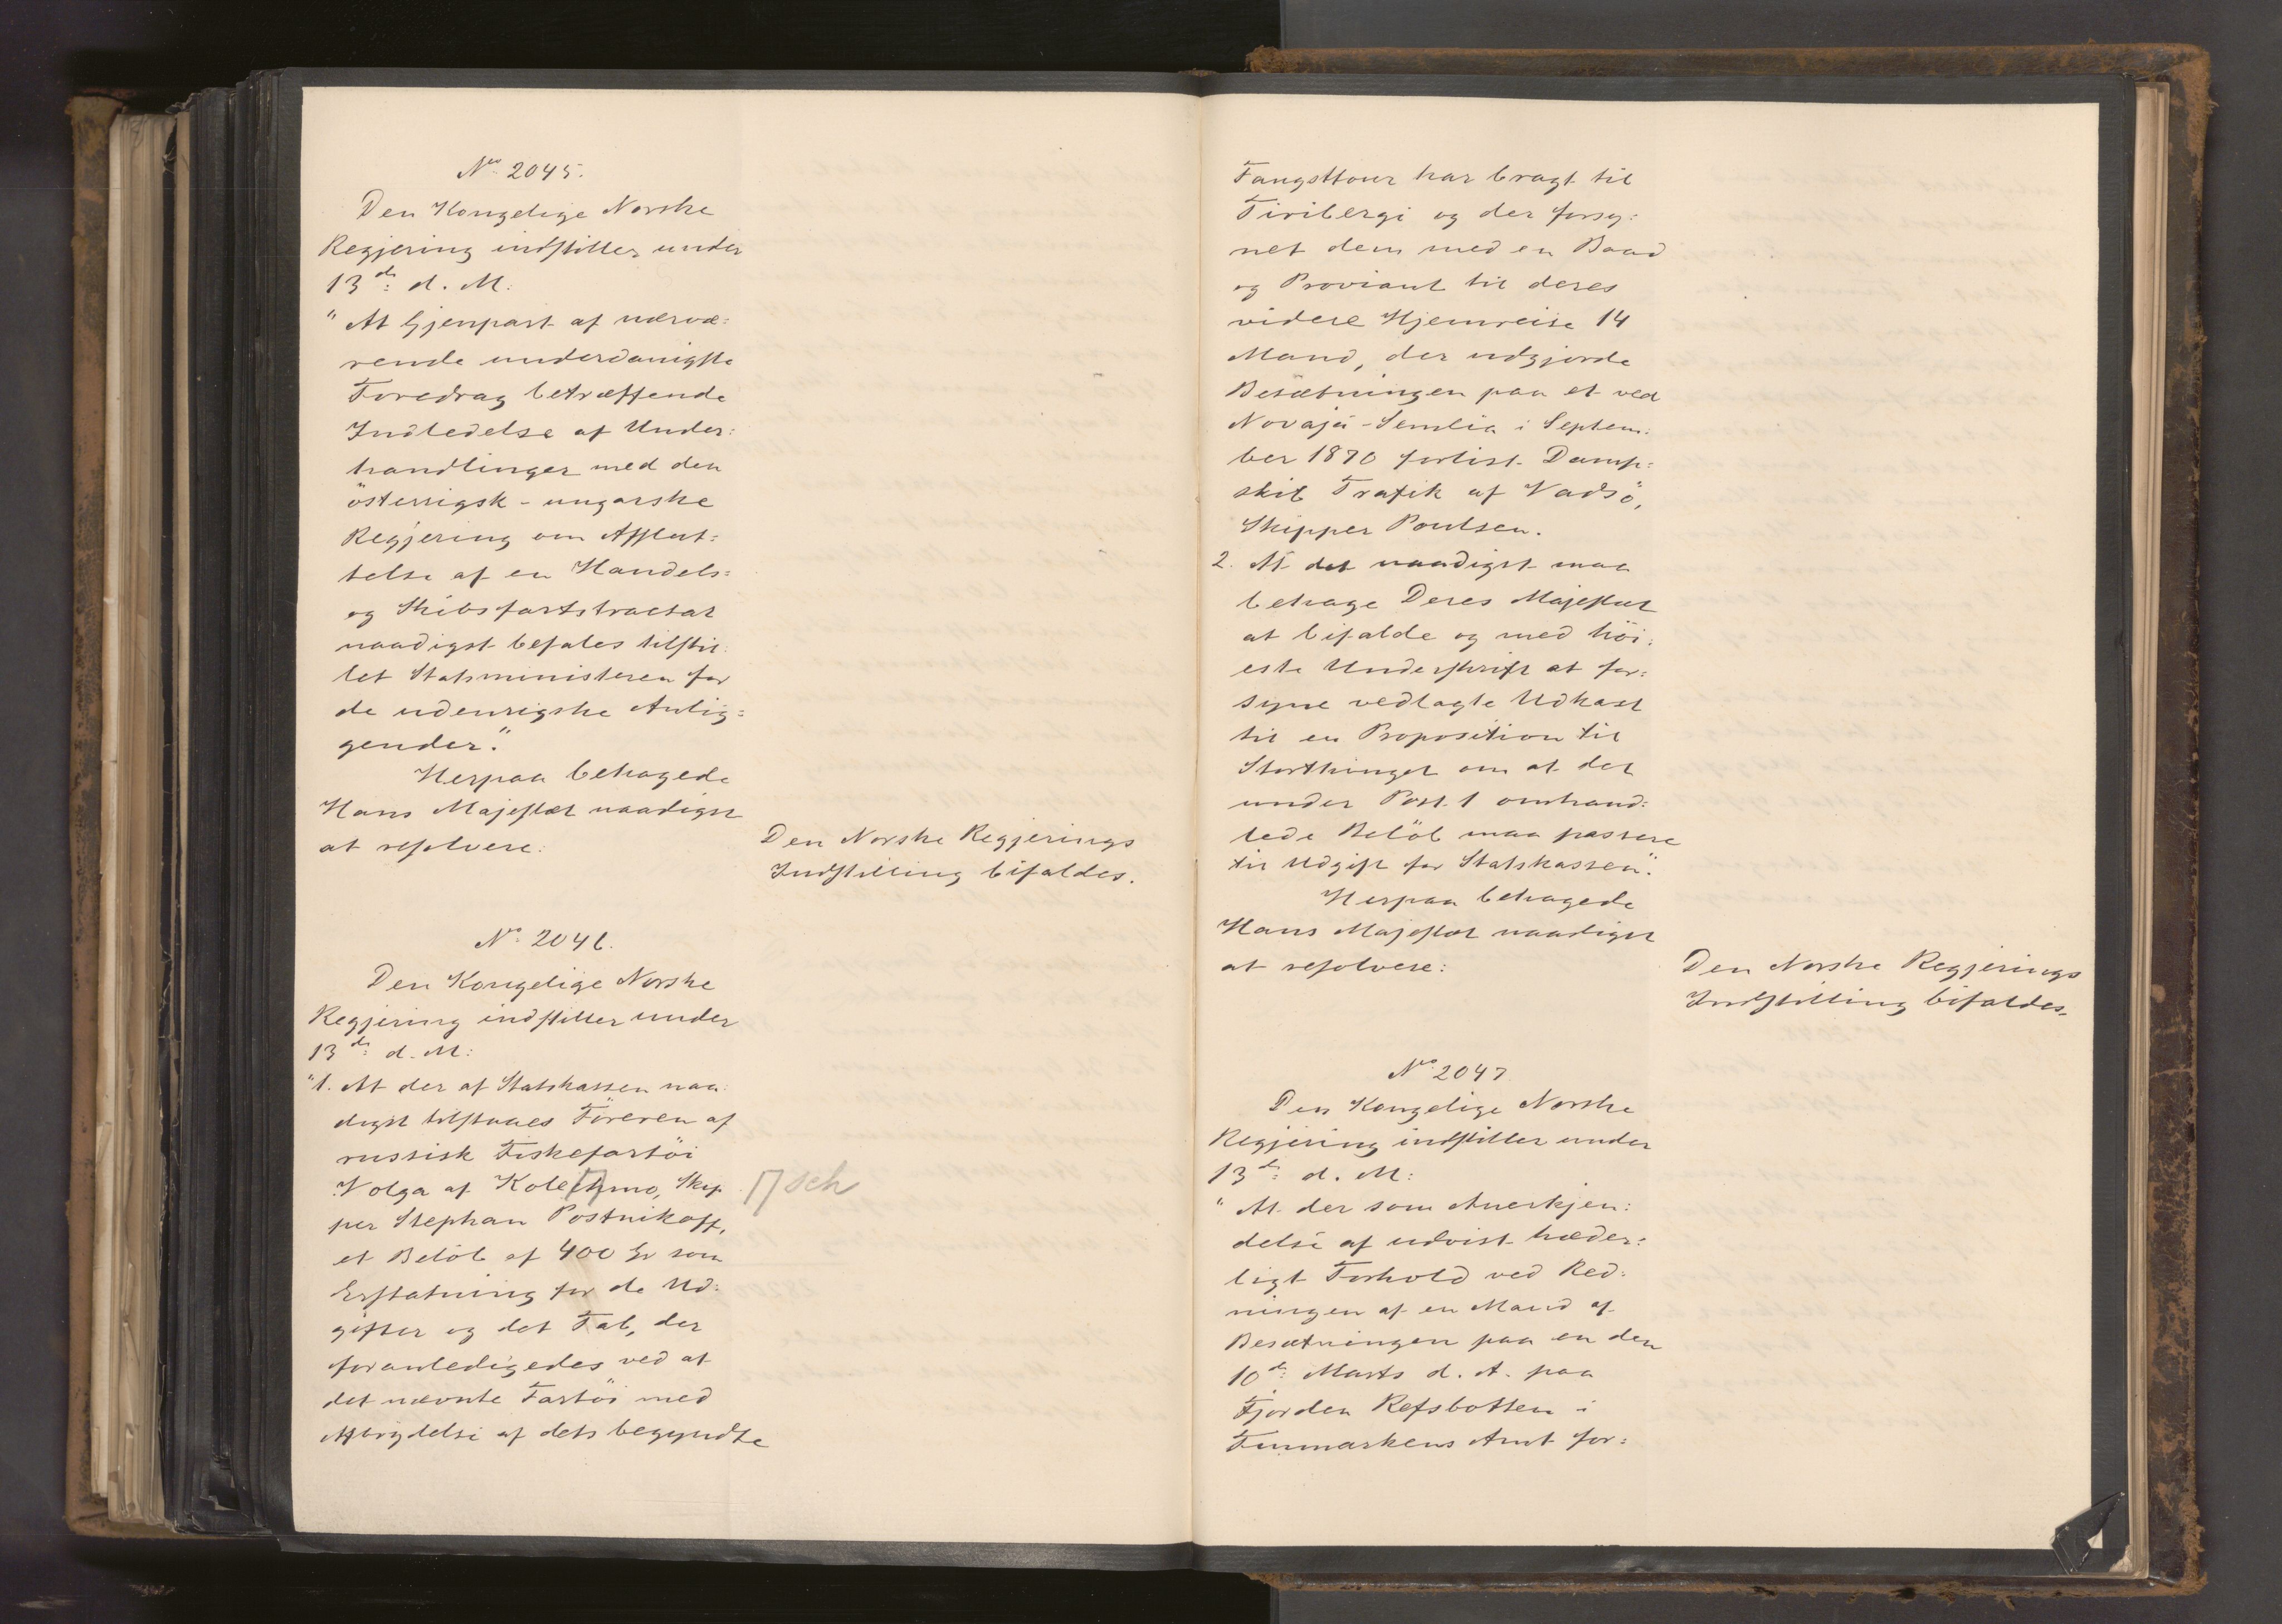 No 2045.
Den Kongelige Norske
Regjering indstiller under
13de d. M:
"At Gjenpart af nærvæ:
rende underdanigste
Foredrag betræffende
Indledelse af Under:
handlinger med den
österrigsk-ungarske
Regjering om Afslut:
telse af en Handels:
og Skibsfartstractat
naadigst befales tilstil:
let Statsministeren for
de udenrigske Anlig:
gender."
Herpaa behagede
Hans Majestæt naadigst
at resolvere:
Den Norske Regjerings
Indstilling bifaldes.
No 2046.
Den Kongelige Norske
Regjering indstiller under
13de d. M:
"1. At der af Statskassen naa:
digst tilstaaes Föreren af
russisk Fiskefartöi
Volga af Skip
sch
per Stephan Postnikoff,
et Belöb af 400 Kr som
Erstatning for de Ud:
gifter og det Tab, der
foranledigedes ved at
det nævnte Fartöi med
Afbrydelse af dets begyndte
Fangsttour har bragt til
Tiribergi og der forsy:
net dem med en Baad
og Proviant til deres
videre Hjemreise 14
Mand, der udgjorde
Besætningen paa et ved
Novaja-Semlia i Septem:
ber 1870 forlist Damp:
skib Trafik af Vadsö,
Skipper Poulsen.
2. At det naadigst maa
behage Deres Majestæt
at bifalde og med höi:
este Underskrift at for:
syne vedlagte Udkast
til en Proposition til
Storthinget om at det
under Post 1 omhand:
lede Belöb maa passere
til Udgift for Statskassen."
Herpaa behagede
Hans Majestæt naadigst
at resolvere:
Den Norske Regjerings
Indstilling bifaldes.
No 2047
Den Kongelige Norske
Regjering indstiller under
13de d. M:
"At der som Anerkjen:
delse af udvist hæder:
ligt Forhold ved Red:
ningen af en Mand af
Besætningen paa en den
10de Marts d. A. paa
Fjorden Refsbotten i
Finmarkens Amt for: